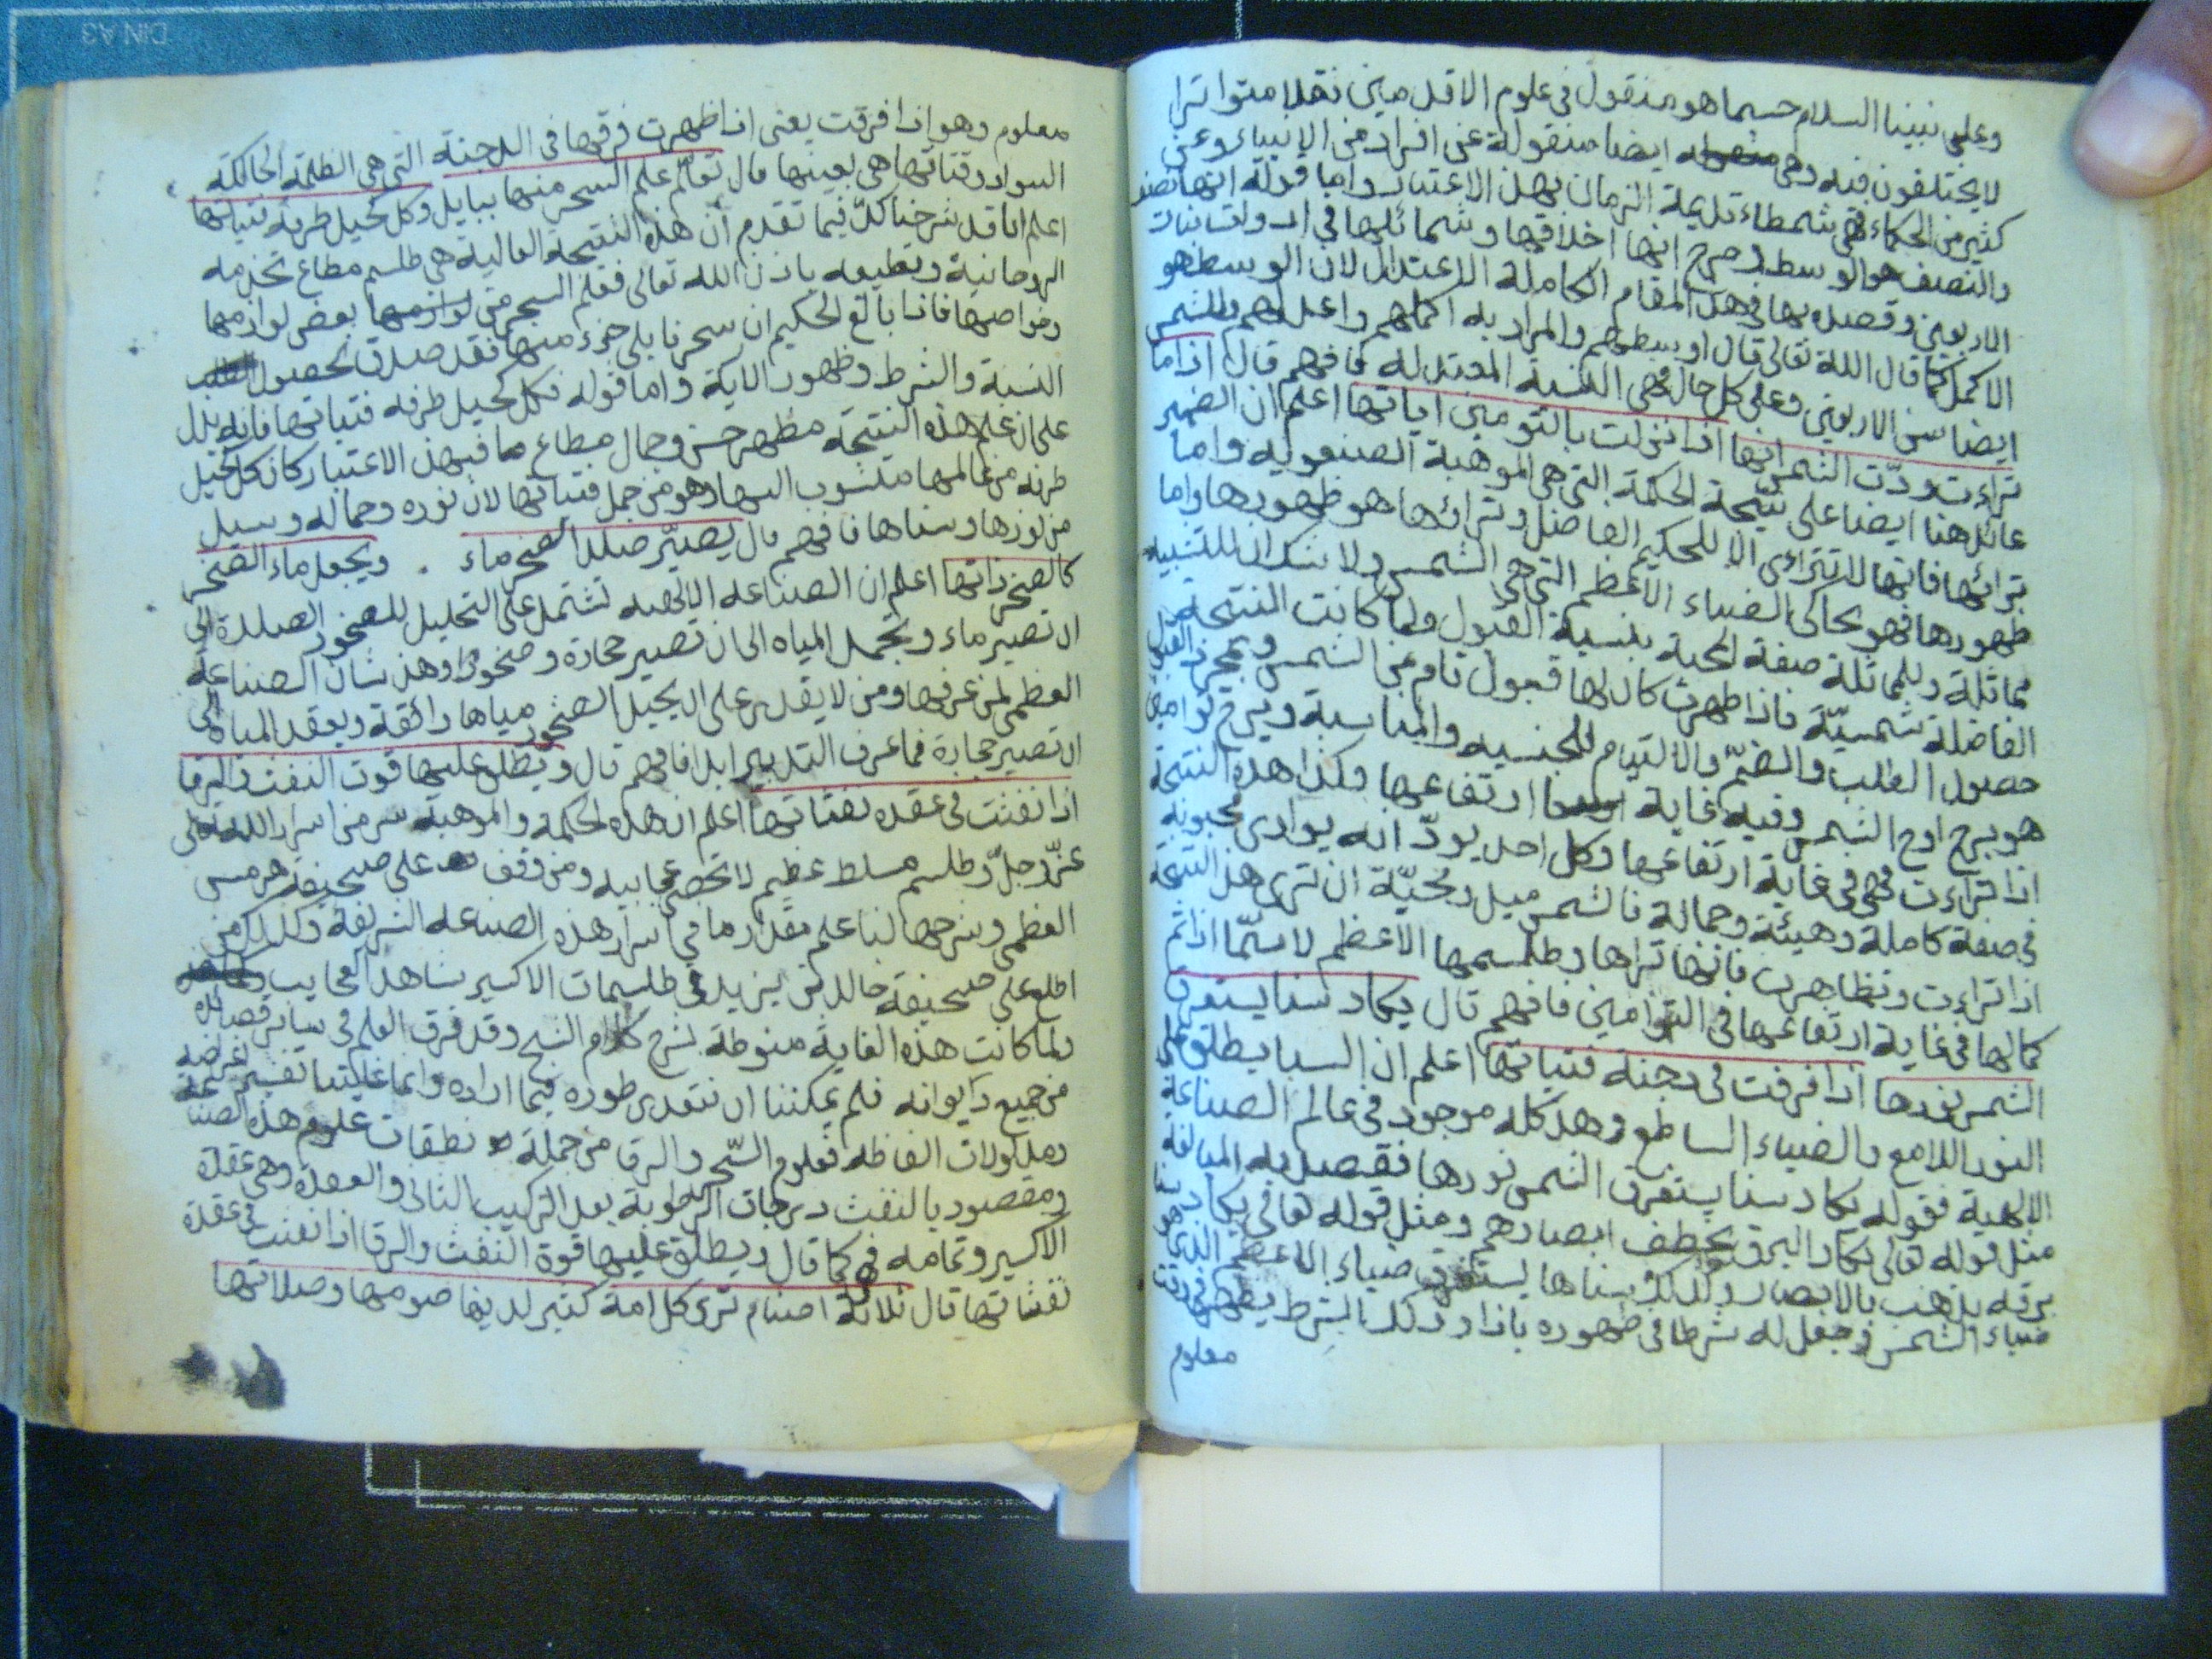 وعلى نبينا السلام حسبما هو منقول في علوم الاقدمين نقلا متواترا
لا يختلفون فيه وهي ايضا منقولة عن افراد من الانبياء وعن
كثير من الحكماء فهي شمطاء قديمة الزمان بهذا الاعتبار واما قوله انها نصف
والنصف هو الوسط وصرح انها اخلاقها وشمائلها في ذوات بنات
الاربعين وقصده بها في هذا المقام الكاملة الاعتدال لان الوسط هو
الاكمل كما قال الله تعالى قال اوسطهم والمراد به اكملهم واعدلهم وللشمس
ايضا سن الاربعين وعلى كل حال فهي النسبة المعتدلة فافهم قال اذا ما
تراءت ودّت الشمس انها اذا نزلت بالتومين اياتها اعلم ان الضمير
عائد هنا ايضا على نتيجة الحكمة التي هي الموهبة الصنعوية واما
ترائها فانها لا تترائى الا للحكيم الفاضل وترائها هو ظهورها واما
ظهورها فهو يحاكي الضياء الاعظم التي هي الشمس ولا شك ان للتشبيه
مماثلة وللمماثلة صفة المحبة بنسبة القبول ولما كانت النتيجة
الفاضلة شمسيّة فاذا ظهرت كان لها قبول تام من الشمس
حصول الطلب والضمّ والالتيام للجنسيه والمناسبة وبرج توامين
هو برج اوج الشمس وفيه غاية ارتفاعها وكذا هذه النتيجة
اذا تراءت فهي في غاية ارتفاعها وكل احد يودّ انه يوازي محبوبه
في صفة كاملة وهيئة وجمالة فالشمس ميل ومحبّة ان ترى هذه النتيجة
اذا تراءت وتظاهرت فانها تراها وطلسمها الاعظم لا سيّما اذا تم
كمالها في غاية ارتفاعها في التوامين فافهم قال يكاد سنا يستغرق
الشمس نورها اذا فرقت في دجنة فتياتها اعلم ان السنا يطلق على
النور اللامع والضياء الساطع وهذا كله موجود في عالم الصناعة
الالهية فقوله يكاد سنا يستغرق الشمس نورها فقصد به المبالغة
مثل قوله تعالى يكاد البرق يخطف ابصارهم ومثل قوله تعالى يكاد سنا
برقه يذهب بالابصار وكذلك سناها يستغرق ضياء الاعظم الذي هو
ضياء الشمس وجعل له شرطا في ظهوره باذا وذلك الشرط يظهر في وقت
معلوم
معلوم وهو اذا فرقت يعنى اذا ظهرت فرقها في الدجنة التي هي الظلمة الحالكة
السواد وفتياتها هي بعينها قال تعلّم علم السحر منها ببابل وكل كحيل طرفه فتياتها
اعلم انا قد شرحنا كلّ فيما تقدم ان هذه النتيجة العالية هي طلسم مطاع تخدمه
الروحانية وتطيعه باذن الله تعالى فعلم السحر من لوازمها بعض لوازمها
وخواصها فاذا بالغ الحكيم ان سحر بابل جزء منها فقد صدق لحصول
النسبة والشرط وظهور الاية واما قوله فكل كحيل طرفه فتياتها فانه يدل
على ان علم هذه النتيجة مظهر حسن وجمال مطاع فبهذا الاعتبار كان كل كحيل
طرفه من عالمها منسوب اليها وهو من جمل فتياتها لان نوره وجماله وسيل
من نورها وسناها فافهم قال يصيّر صلد الصخر ماء . ويجعل ماء الصخر
كالصخر ذاتها اعلم ان الصناعة الالهية تشتمل على التحليل للصخور الصلدة الى
ان تصير ماء وتجمد المياه الى ان تصير حجارة وصخورا وهذا شان الصناعة
العظمى لمن عرفها ومن لا يقدر على ان يحيل الصخور مياها رائقة ويعقد المياه الى
ان تصير حجارة فما عرف التدبير ابدا فافهم قال ويطلق عليها قوت النفث والرقا
اذا نفثت في عقده نفثاتها اعلم ان هذه الحكمة والموهبة سر من اسرار الله تعالى
عزّ وجلّ وطلسم مسلط عظيم لا تحصى عجايبه ومن وقف على صحيفة هرمس
العظمى وشرحها لنا علم مقدار ما في اسرار هذه الصناعة الشريفة وكذلك من
اطلع على صحيفة خالد بن يزيد في طلسمات الاكسير شاهد العجايب
ولما كانت هذه الغاية منوطة بشرح كلام الشيخ وقد فرق العلم في سائر قصائده
من جميع ديوانه فلم يمكننا ان نتعدى طوره فيما اراده وانما علينا تفسير غرضه
ومدلولات الفاظه فعلوم السّحر والرقا من جملة نطقات علوم هذه الصناعة
ومقصوده بالنفث درجات الرطوبة بعد التركيب الثاني والعقدة وهي عقدة
الاكسير وتمامه في كما قال ويطلق عليها قوة النفث والرقا اذا نفثت في عقدة
نفثاتها قال ثلاثة اصنام ترى كل امة كثير لديها صومها وصلاتها